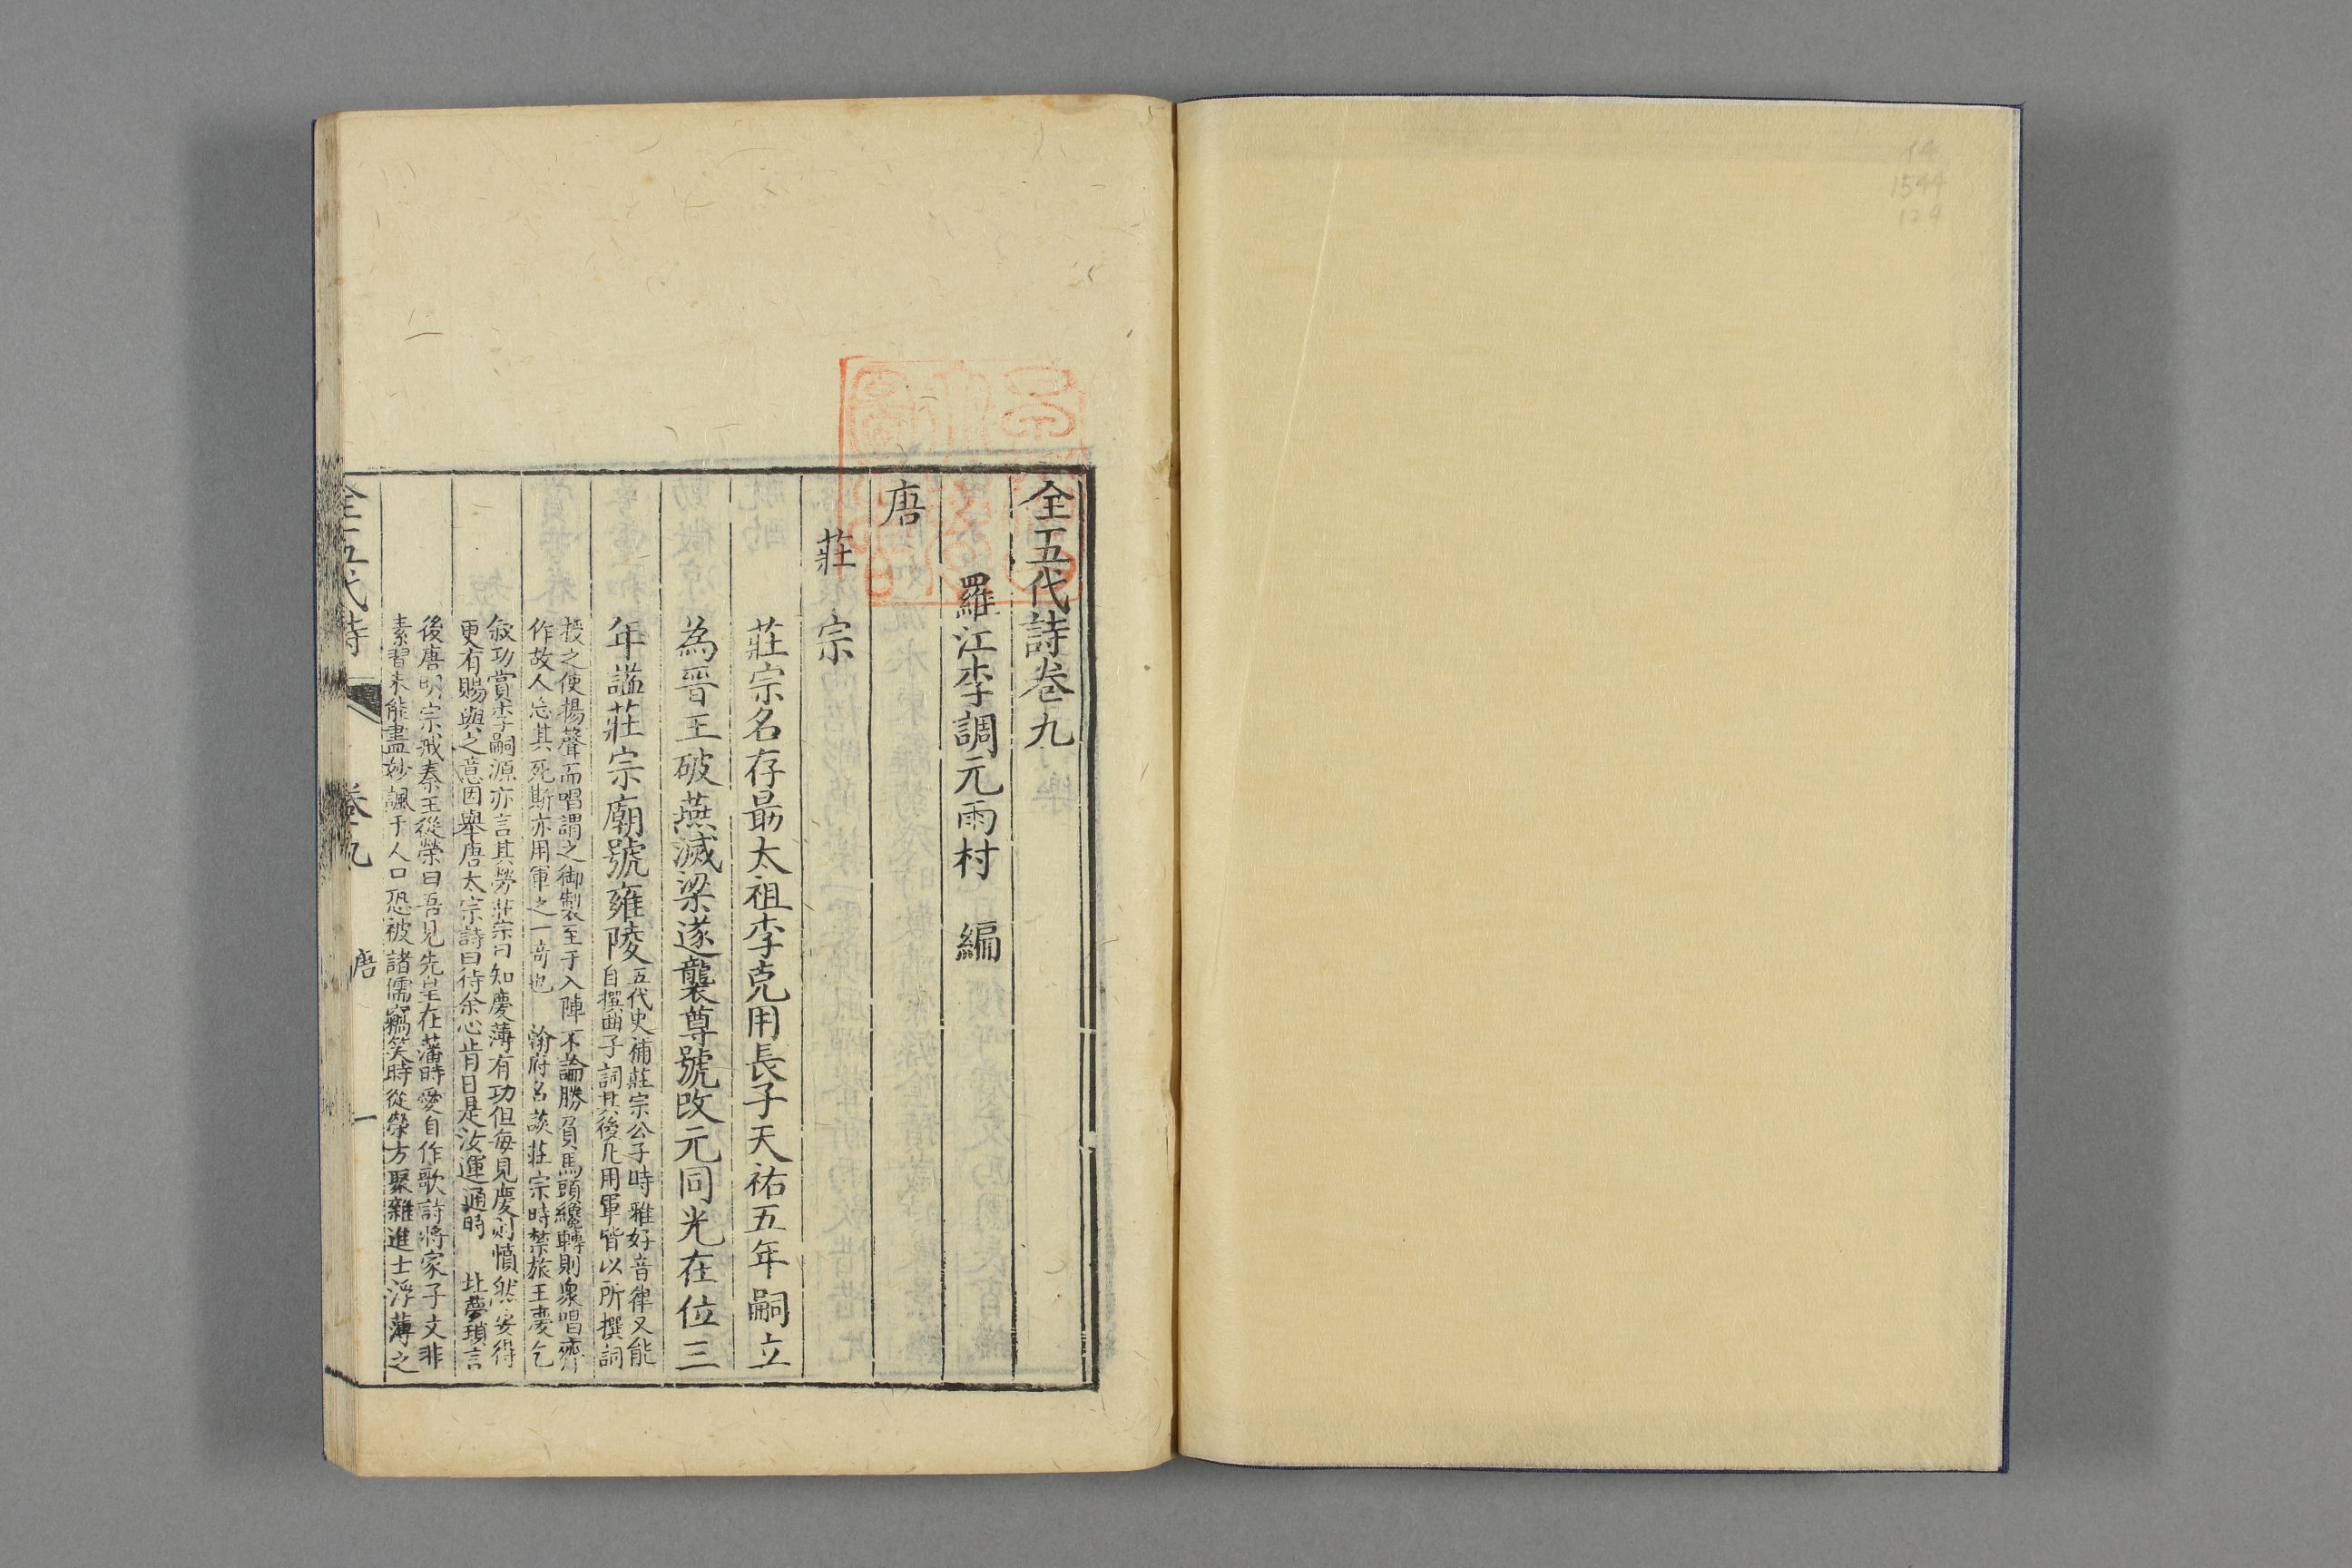 全五代詩卷九
羅江李調元雨村 編
唐
莊 宗
莊宗名存勗太祖李克用長子天祐五年嗣立
為晉王破燕滅梁遂襲尊號改元同光在位三
年諡莊宗廟號雍陵
五代史補莊宗公子時雅好音律又能
自撰曲子詞其後凡用軍皆以所撰詞
授之使揚聲而唱謂之御製至于入陣不論勝負馬頭纔轉則衆唱齊
作故人忘其死斯亦用軍之一奇也 翰府名談莊宗時禁旅王慶乞
叙功賞李嗣源亦言其勞莊宗曰知慶薄有功但每見慶則憤然安得
更有賜與之意因舉唐太宗詩曰待余心肯日是汝運通時 北夢瑣言
後唐明宗戒秦王從榮曰吾見先皇在藩時愛自作歌詩將家子文非
素習未能盡妙諷于人口恐被諸儒竊笑時從榮方聚雜進士浮薄之
全五代詩 卷九 唐 一
1544
124